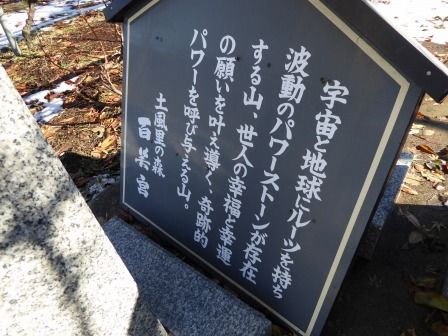 宇宙と地球にルーツを持ち
波動のパワーストーンが存在
する山、世人の幸福と幸運
の願いを叶え導く、奇跡的
パワーを呼び与える山。
土風里の森
百笑宮